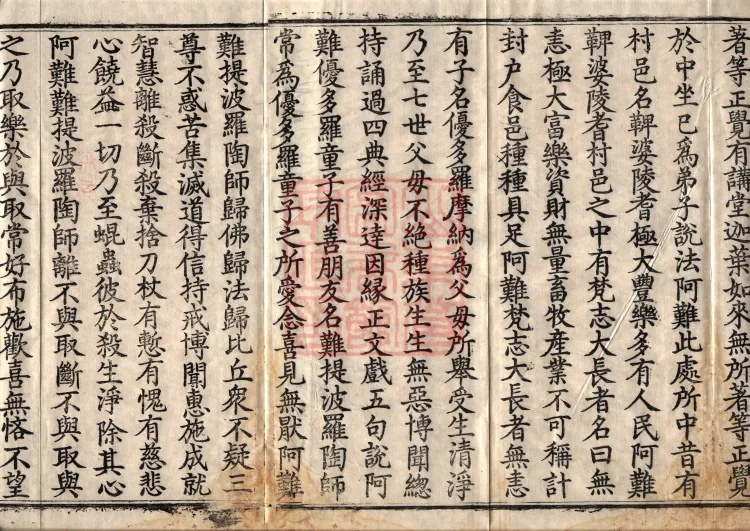 著等正覺有講堂迦葉如來無所著等正覺
於中坐已爲弟子說法阿難此處所中昔有
村邑名鞞婆陵耆極大豐樂多有人民阿難
鞞婆陵耆村邑之中有梵志大長者名曰無
恚極大富樂資財無量畜牧産業不可稱計
封户食邑種種具足阿難梵志大長者無恚
有子名優多羅摩納爲父母所舉受生清淨
乃至七世父母不絶種族生生無惡博聞總
持誦過四典經深達因緣正文戲五句說阿
難優多羅童子有善朋友名難提波羅陶師
常爲優多羅童子之所愛念喜見無猒阿難
難提波羅陶師歸佛歸法歸比丘衆不疑三
尊不惑苦集滅道得信持戒博聞惠施成就
智慧離殺斷殺棄捨刀杖有慙有愧有慈悲
心饒益一切乃至蜫蟲彼於殺生淨除其心
阿難難提波羅陶師離不與取斷不與取與
之乃取樂於與取常好布施歡喜無悋不望